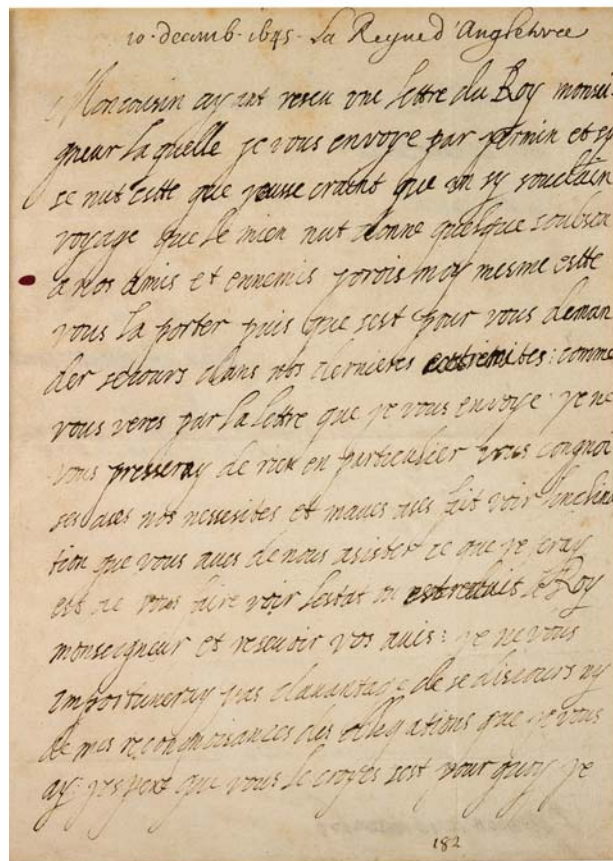 10 · decemb · 1645 · La Reyne d'Angleterre
Mon cousin ayant reseu une lettre du Roy monsei
gneur laquelle je vous envoye par germin et sy
se nut este que jeusse craint que un sy soudain
voyage que le mien nut donne quelque soubson
a nos amis et ennemis jorois moy mesme este
vous la porter puis que sest pour vous deman
der secours dans nos dernieres extremites: comme
vous veres par la lettre que je vous envoye · je ne
vous presseray de rien en particulier vous congnoi
ses ases nos nessesites et maves ases fait voir linclina
tion que vous aves de nous asister ce que je feray
est de vous faire voir lestat ou est reduit le Roy
monseigneur et resevoir vos avis: je ne vous
importuneray pas davantage de se discours ny
de mes recongnoisances des obligations que je vous
ay: jespere que vous le croyes sest pour quoy je
182